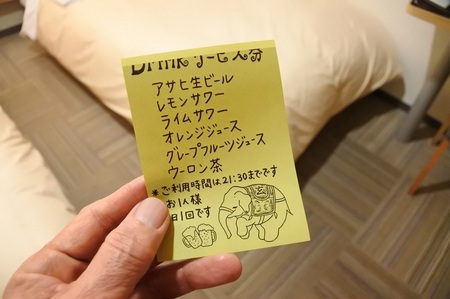 Drink サービス券
アサヒ生ビール
レモンサワー
ライムサワー
オレンジジュース
グレープフルーツジュース
ウーロン茶
*ご利用時間は21:30までです
お1人様
1日1回です
玄